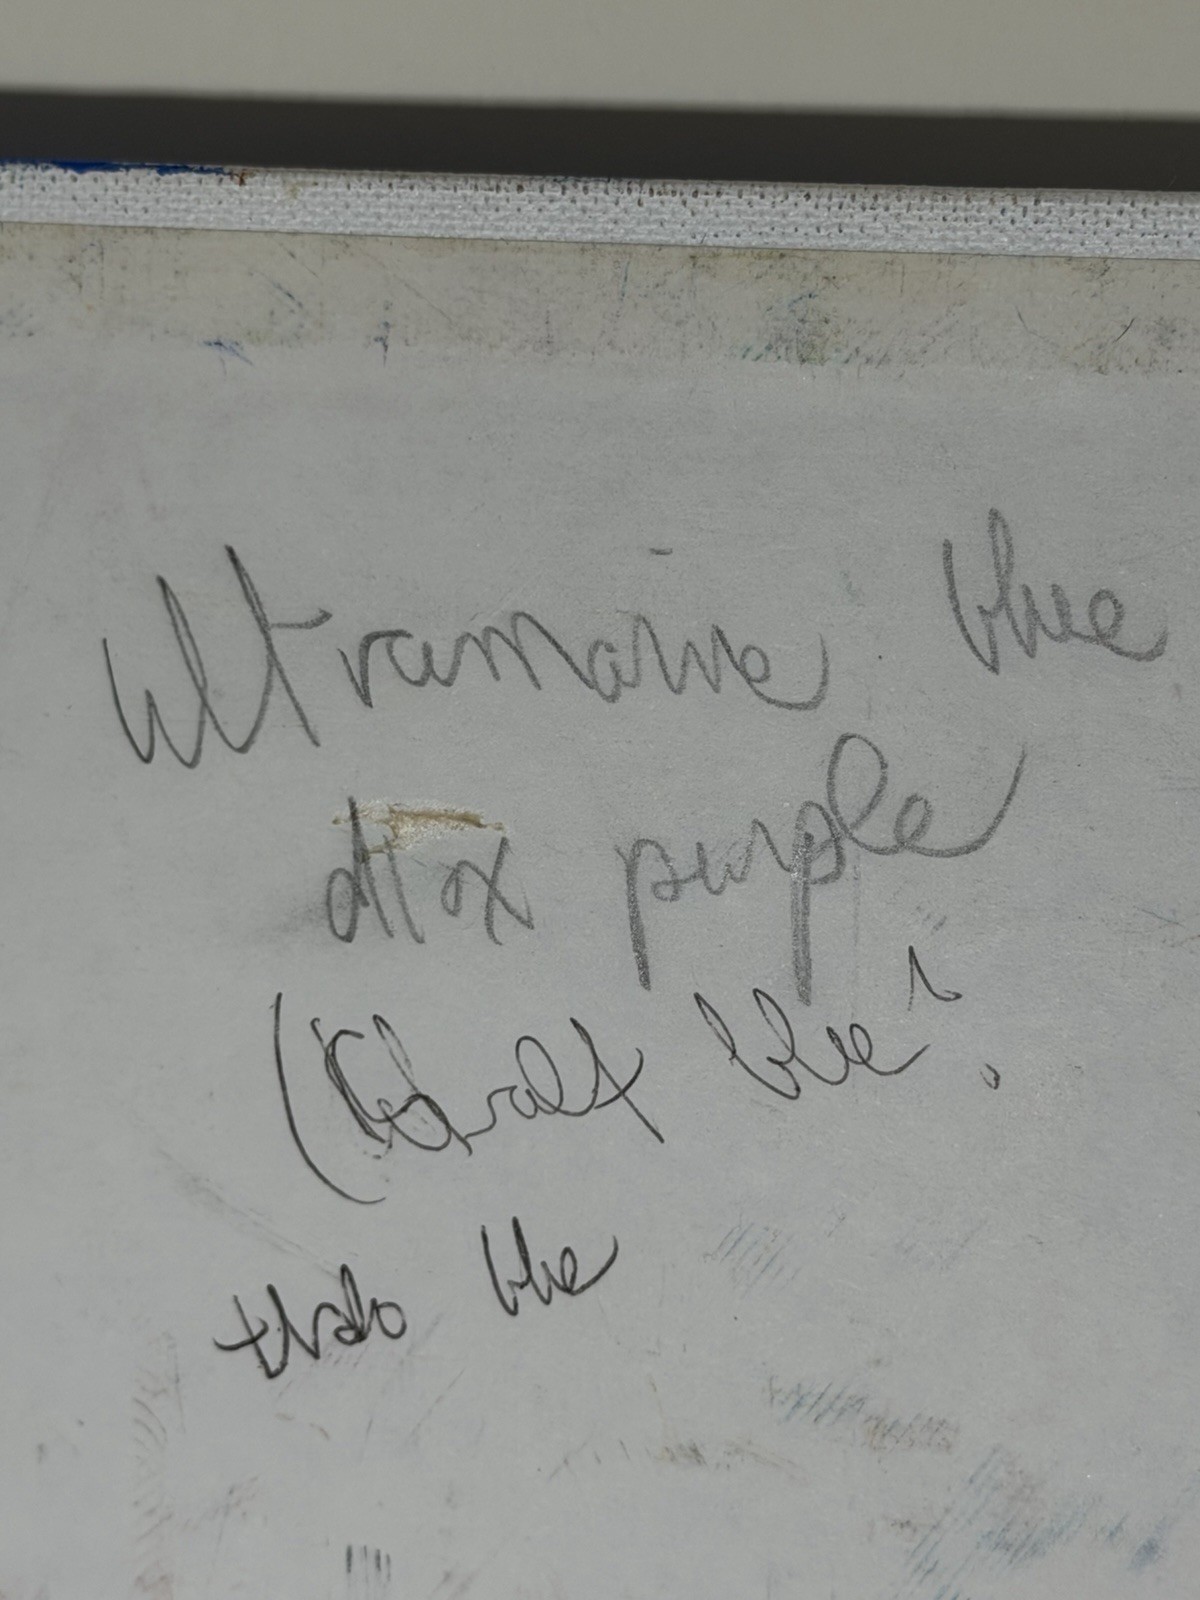 ultramarine blue
diox purple
(Cobalt blue?
thalo blue